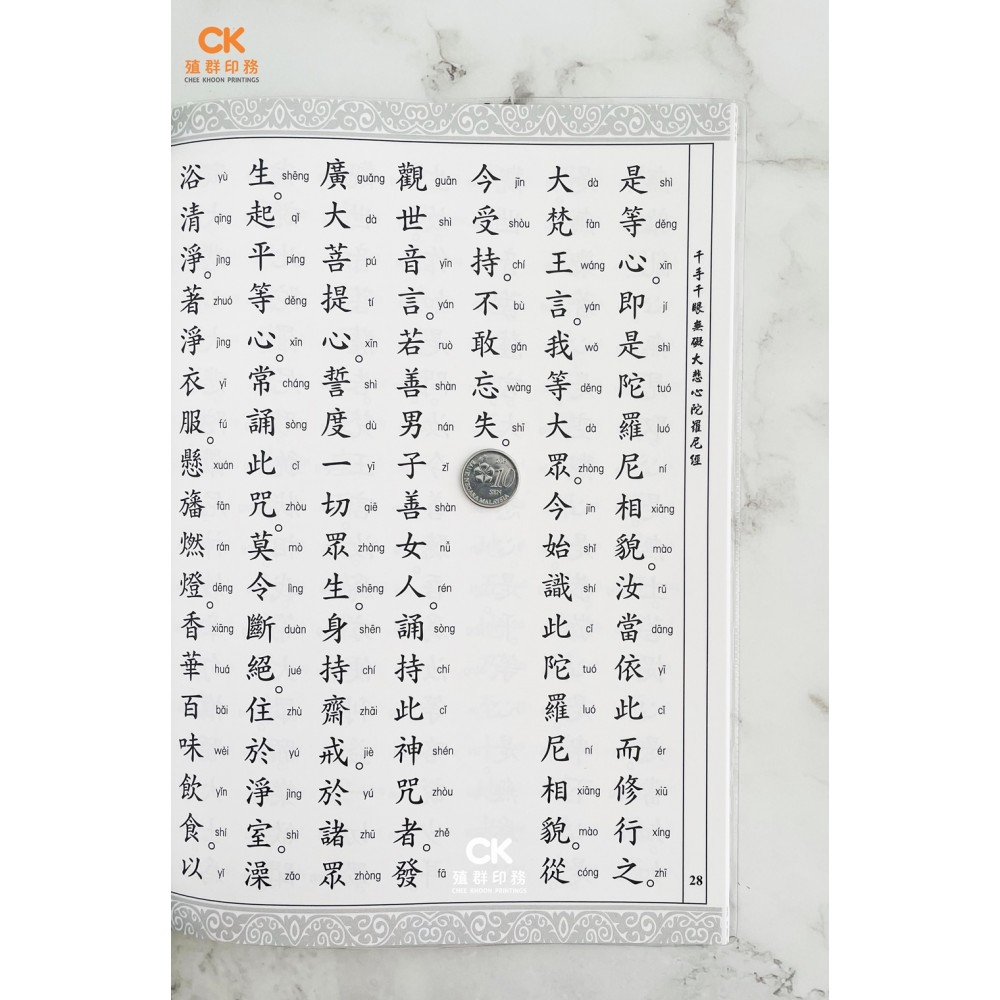 CK
殖群印務
CHEE KHOON PRINTINGS
千手千眼無礙大悲心陀羅尼經
28
是等心。即是陀羅尼相貌。汝當依此而修行之。
shì děng xīn jí shì tuó luó ní xiàng mào rǔ dāng yī cǐ ér xiū xíng zhī
大梵王言。我等大眾。今始識此陀羅尼相貌。從
dà fàn wáng yán wǒ děng dà zhòng jīn shǐ shí cǐ tuó luó ní xiàng mào cóng
今受持。不敢忘失。
jīn shòu chí bù gǎn wàng shī
觀世音言。若善男子善女人。誦持此神咒者。發
guān shì yīn yán ruò shàn nán zǐ shàn nǚ rén sòng chí cǐ shén zhòu zhě fā
廣大菩提心。誓度一切眾生。身持齋戒。於諸眾
guǎng dà pú tí xīn shì dù yī qiē zhòng shēng shēn chí zhāi jiè yú zhū zhòng
生。起平等心。常誦此咒。莫令斷絕。住於淨室。澡
shēng qǐ píng děng xīn cháng sòng cǐ zhòu mò lìng duàn jué zhù yú jìng shì zǎo
浴清淨。著淨衣服。懸旛燃燈。香華百味飲食。以
yù qīng jìng zhuó jìng yī fú xuán fān rán dēng xiāng huá bǎi wèi yǐn shí yǐ
10
SEN
NEGARA MALAYSIA
CK
殖群印務
CHEE KHOON PRINTINGS